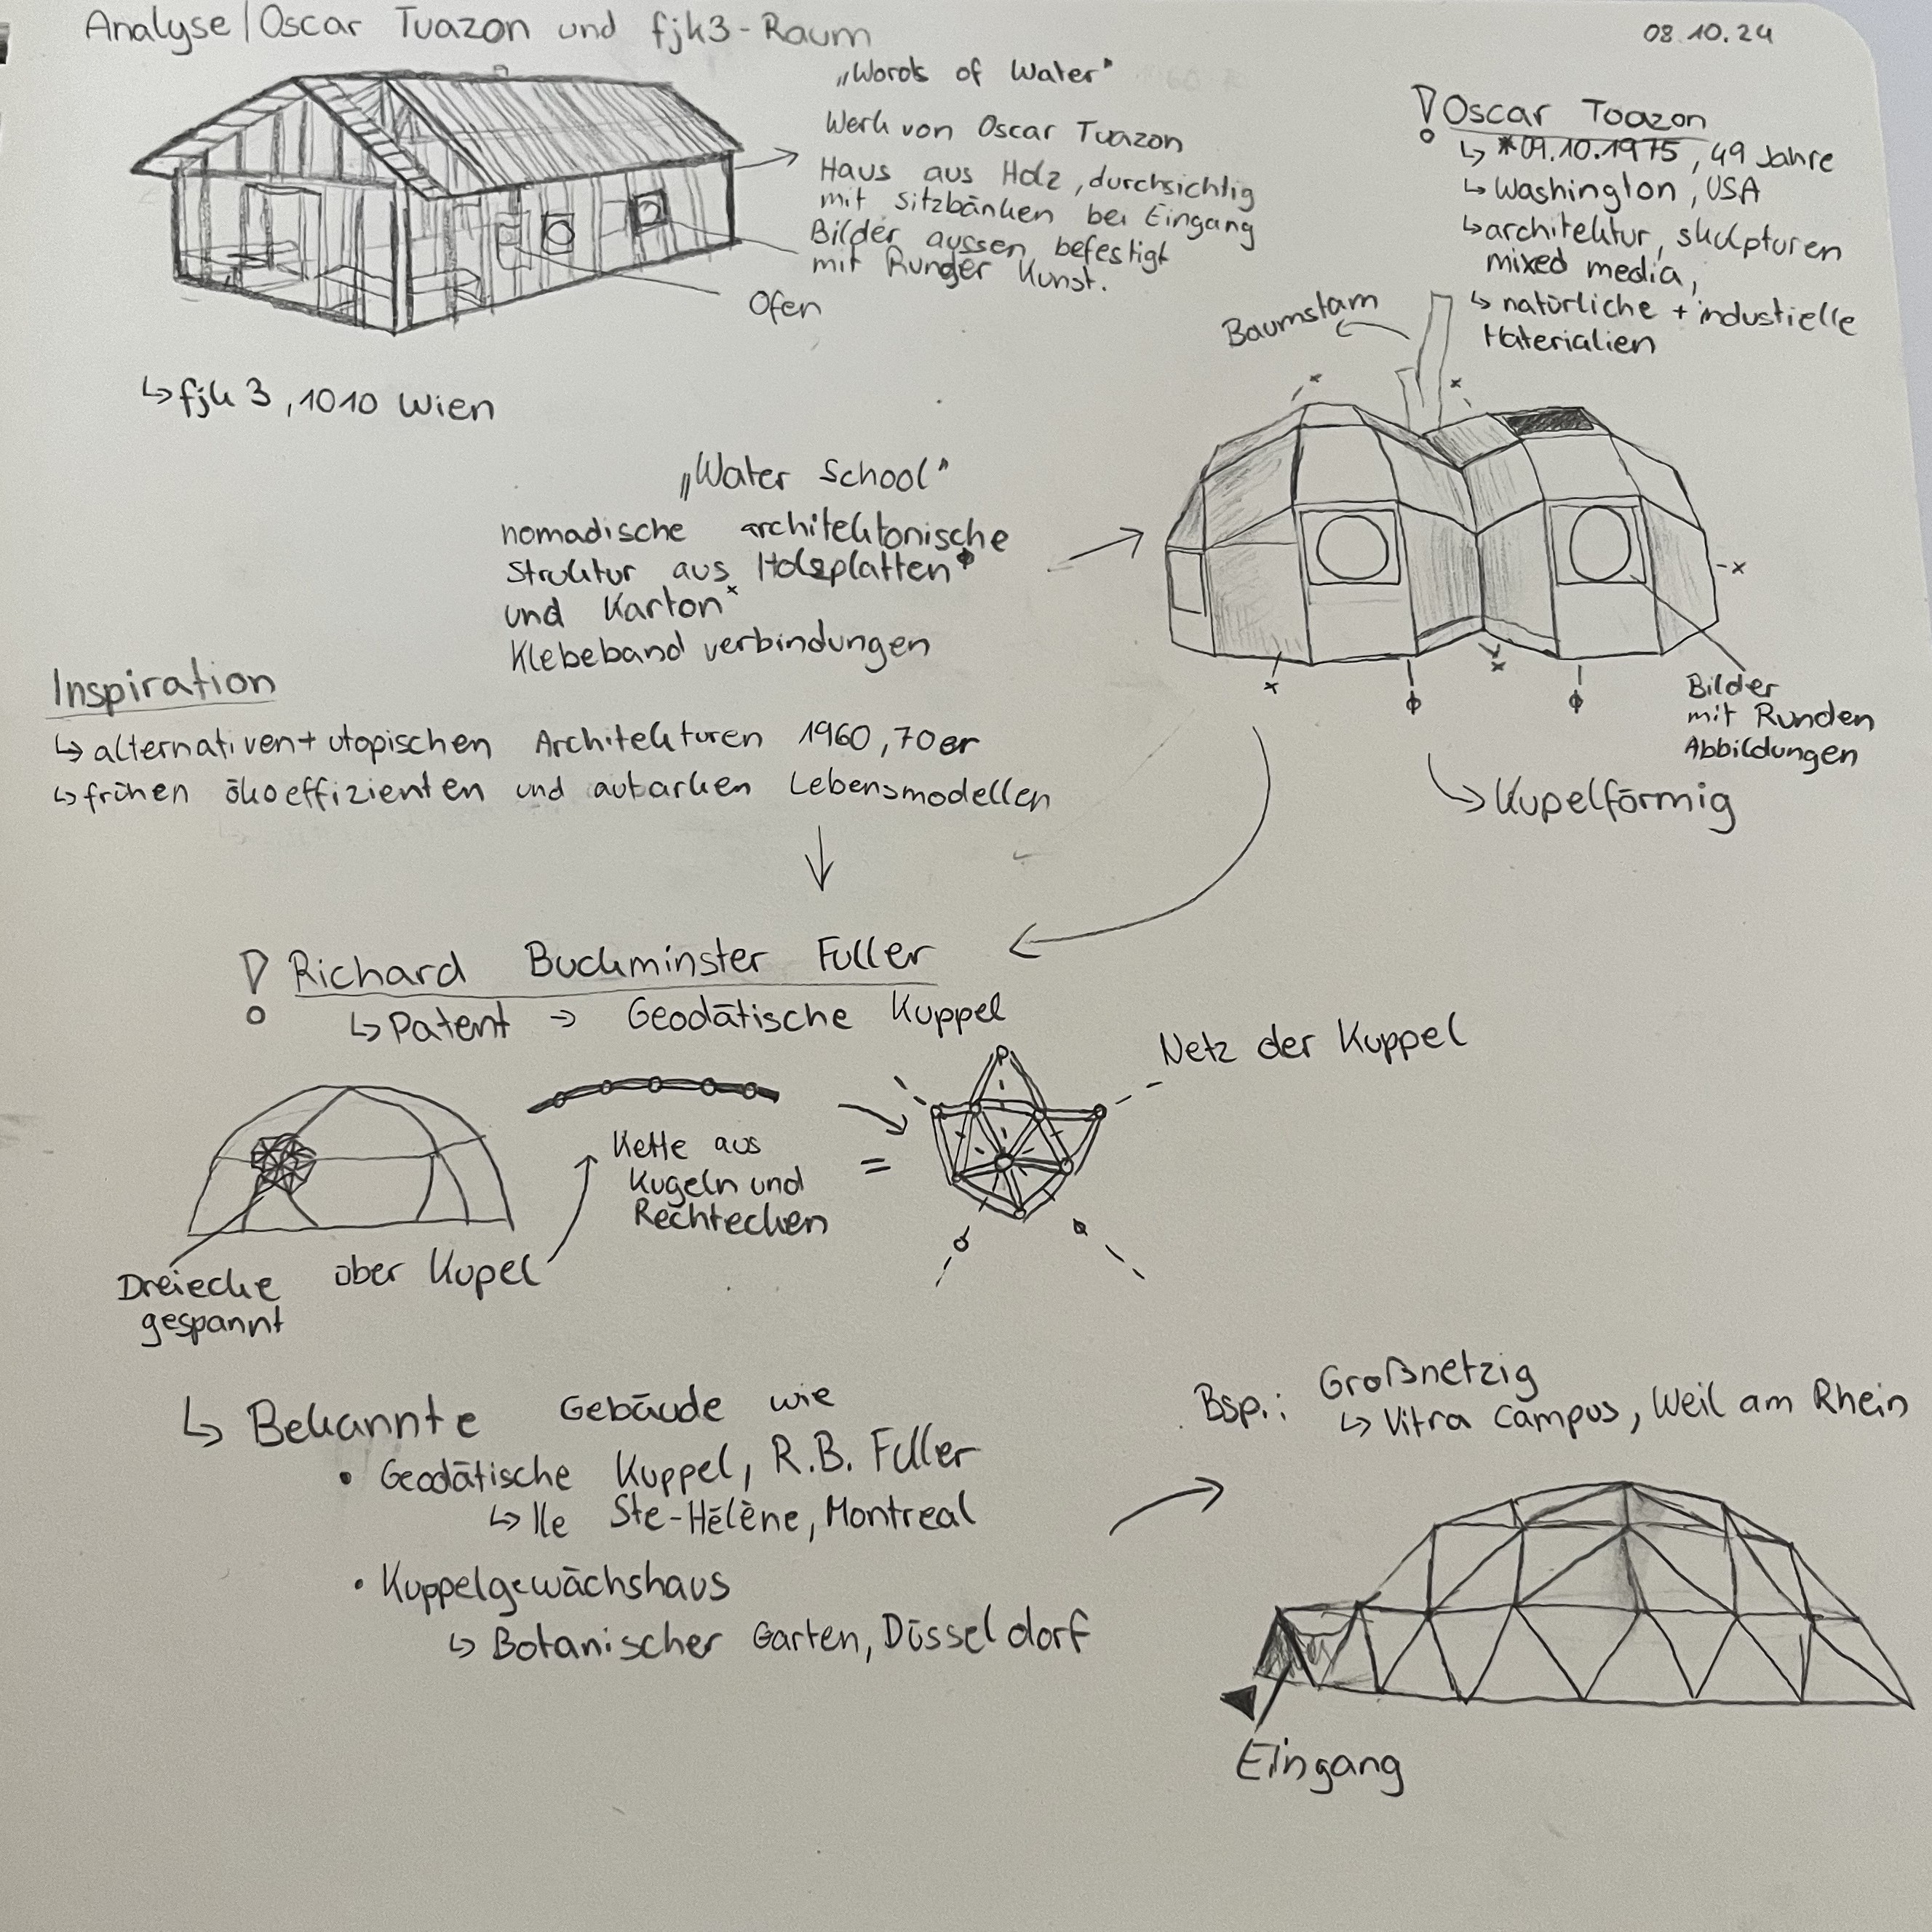 Analyse/Oscar Tuazon und fjk3-Raum
08.10.24
„Words of Water"
Werk von Oscar Tuazon
Haus aus Holz, durchsichtig
mit Sitzbänken bei Eingang
Bilder aussen befestigt
mit Runder Kunst.
Ofen
↳ fjk 3, 1010 Wien
Oscar Toazon
↳ *09.10.1975, 49 Jahre
↳ Washington, USA
↳ architektur, skulpturen
mixed media,
↳ natürliche + industielle
Materialien
Baumstam
„Water School"
nomadische architektonische
Struktur aus Holzplatten ϕ
und Karton x
Klebeband verbindungen
x
x
-x
x
ϕ
x
ϕ
Bilder
mit Runden
Abbildungen
↳ Kupelförmig
Inspiration
↳ alternativen + utopischen Architekturen 1960, 70er
↳ frühen ökoeffizienten und autarken Lebensmodellen
Richard Buckminster Fuller
↳ Patent → Geodätische Kuppel
Netz der Kuppel
Kette aus
Kugeln und
Rechtecken
=
Dreiecke über Kupel
gespannt
↳ Bekannte Gebäude wie
• Geodätische Kuppel, R.B. Fuller
↳ Ile Ste-Hélène, Montreal
• Kuppelgewächshaus
↳ Botanischer Garten, Düsseldorf
Bsp.: Großnetzig
↳ Vitra Campus, Weil am Rhein
Eingang